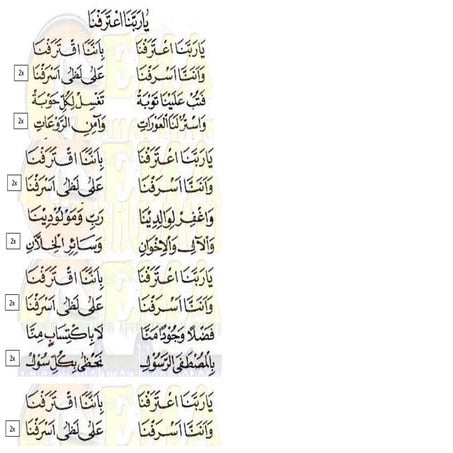 يَارَبَّنَا اعْتَرَفْنَا
يَارَبَّنَا اعْتَرَفْنَا بِأَنَّنَا اقْتَرَفْنَا
وَأَنَّنَا أَسْرَفْنَا عَلَى لَظَى أَشْرَفْنَا 2x
فَتُبْ عَلَيْنَا تَوْبَةْ تَغْسِلْ لِكُلِّ حَوْبَةْ
وَاسْتُرْ لَنَا الْعَوْرَاتِ وَآمِنِ الرَّوْعَاتِ 2x
يَارَبَّنَا اعْتَرَفْنَا بِأَنَّنَا اقْتَرَفْنَا
وَأَنَّنَا أَسْرَفْنَا عَلَى لَظَى أَشْرَفْنَا 2x
وَاغْفِرْ لِوَالِدِيْنَا رَبِّ وَمَوْلُوْدِيْنَا
وَالْآلِ وَالْإِخْوَانِ وَسَائِرِ الْخِلَّانِ 2x
يَارَبَّنَا اعْتَرَفْنَا بِأَنَّنَا اقْتَرَفْنَا
وَأَنَّنَا أَسْرَفْنَا عَلَى لَظَى أَشْرَفْنَا 2x
فَضْلًا وَجُوْدًا مَنَّا لَا بِاكْتِسَابٍ مِنَّا
بِالْمُصْطَفَى الرَّسُوْلِ نَحْظَى بِكُلِّ سُوْلِ 2x
يَارَبَّنَا اعْتَرَفْنَا بِأَنَّنَا اقْتَرَفْنَا
وَأَنَّنَا أَسْرَفْنَا عَلَى لَظَى أَشْرَفْنَا 2x